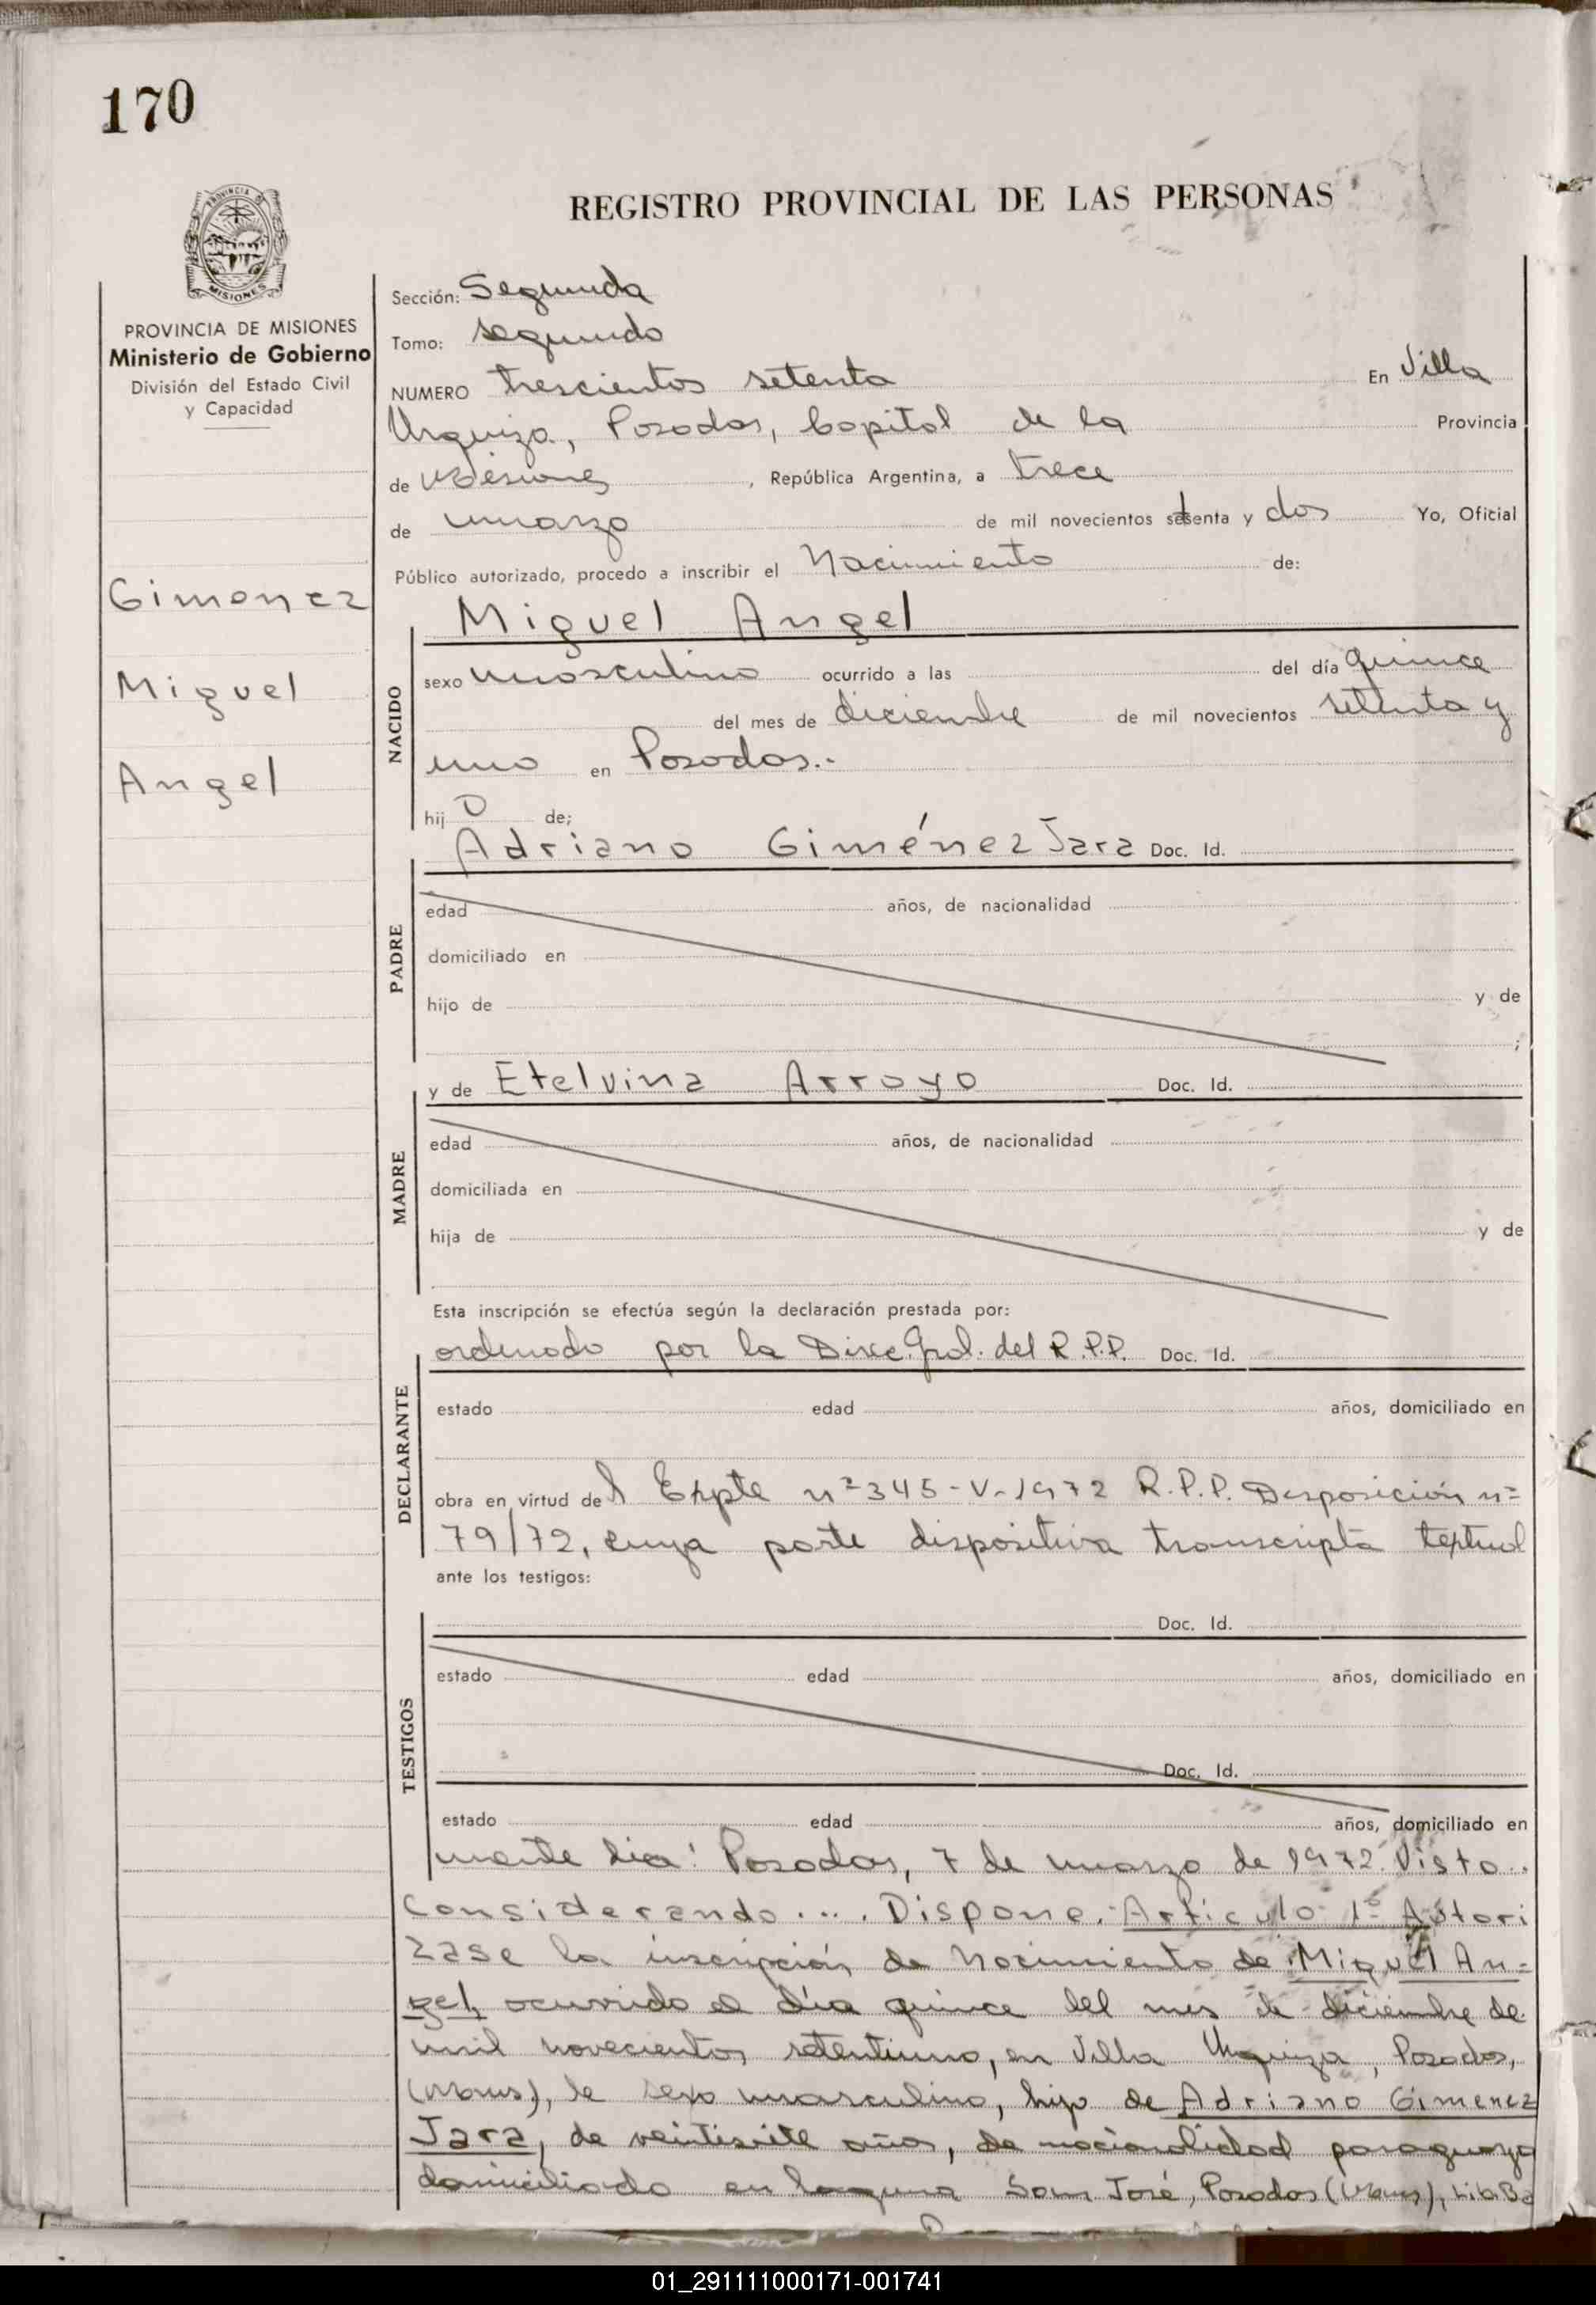 170
REGISTRO PROVINCIAL DE LAS PERSONAS
PROVINCIA
MISIONES
PROVINCIA DE MISIONES
Ministerio de Gobierno
División del Estado Civil
y Capacidad
Gimenez
Miguel
Angel
Sección: Segunda
Tomo: segundo
NUMERO trescientos setenta En Villa
Urquiza, Posadas, Capital de la Provincia
de Misiones, República Argentina, a trece
de marzo de mil novecientos setenta y dos Yo, Oficial
Público autorizado, procedo a inscribir el Nacimiento de:
NACIDO
Miguel Angel
sexo masculino ocurrido a las del día quince
del mes de diciembre de mil novecientos setenta y
uno en Posadas.-
hijo de;
PADRE
Adriano Giménez Jara Doc. Id.
edad años, de nacionalidad
domiciliado en
hijo de y de
;
MADRE
y de Etelvina Arroyo Doc. Id.
edad años, de nacionalidad
domiciliada en
hija de y de
Esta inscripción se efectúa según la declaración prestada por:
DECLARANTE
ordenado por la Direc. Gral. del R.P.P. Doc. Id.
estado edad años, domiciliado en
obra en virtud del Expte nº 345-V-1972 R.P.P. Disposición nº
79/72, cuya parte dispositiva transcripta textual
ante los testigos:
TESTIGOS
Doc. Id.
estado edad años, domiciliado en
Doc. Id.
estado edad años, domiciliado en
mente dia: Posadas, 7 de marzo de 1972. Visto..
Considerando.... Dispone. Articulo 1º Autori
zase la inscripción de Nacimiento de Miguel An=
gel, ocurrido el día quince del mes de diciembre de
mil novecientos setentiuno, en Villa Urquiza, Posadas,
(Mnes), de sexo masculino, hijo de Adriano Gimenez
Jara, de veintisiete años, de nacionalidad paraguaya
domiciliado en Laguna San José, Posadas (Mnes),
01_291111000171-001741